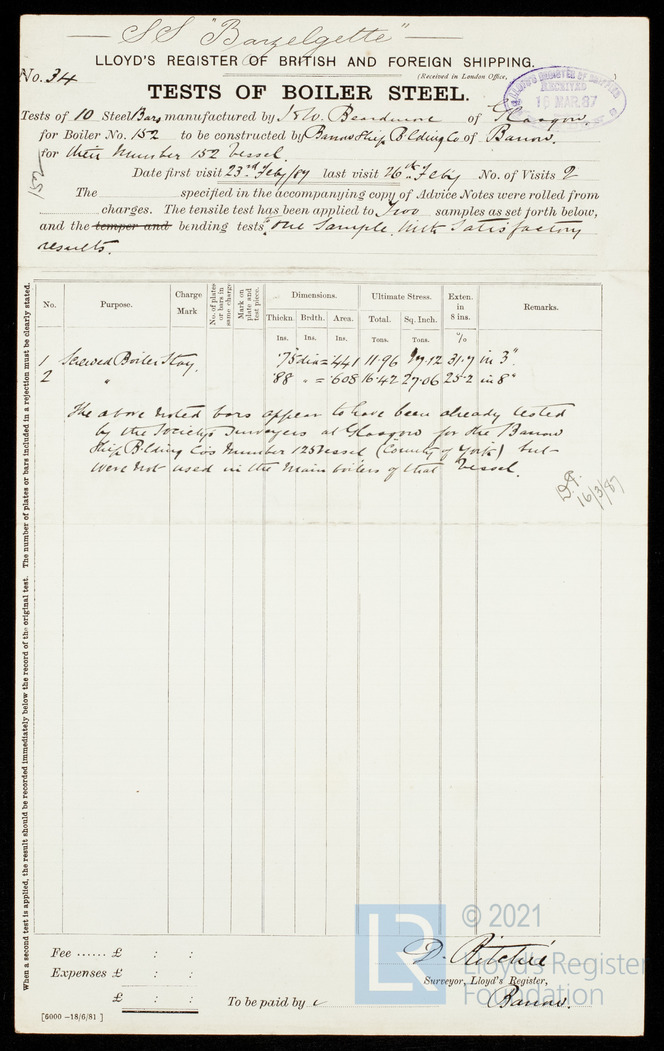 SS "Bazelgette"
LLOYD'S REGISTER OF BRITISH AND FOREIGN SHIPPING.
No. 34
(Received in London Office,
TESTS OF BOILER STEEL.
LLOYD'S REGISTER OF SHIPPING
RECEIVED
16 MAR. 87
Tests of 10 Steel Bars manufactured by W. Beardmore of Glasgow.
for Boiler No. 152 to be constructed by Barrow Ship Blding Co of Barrow.
for their Number 152 Vessel.
152
Date first visit 23rd Feby/87 last visit 26th Feby No. of Visits 2
The specified in the accompanying copy of Advice Notes were rolled from
charges. The tensile test has been applied to Two samples as set forth below,
and the temper and bending tests "One Sample with Satisfactory
results.
No. Purpose. Charge Mark No. of plates or bars in same charge Mark on plate and test piece. Dimensions. Ultimate Stress. Exten. in 8 ins. Remarks.
Thickn Brdth. Area. Total. Sq. Inch.
Ins. Ins. Ins. Tons. Tons. %
1 Screwed Boiler Stay. ·75 dia = ·441 11·96 27·12 31·7 in 3".
2 " ·88 " = ·608 16·42 27·06 25·2 in 8"
The above noted bars appear to have been already tested
by the Society's Surveyors at Glasgow for the Barrow
Ship Blding Co's Number 125 Vessel (County of York) but
were not used in the main boilers of that Vessel.
16/3/87
When a second test is applied, the result should be recorded immediately below the record of the original test. The number of plates or bars included in a rejection must be clearly stated.
Fee ...... £ : :
Expenses £ : :
£ : :
To be paid by
D. Ritchie
Surveyor, Lloyd's Register,
Barrow.
[6000 –18/6/81 ]
LR
© 2021
Lloyd's Register
Foundation